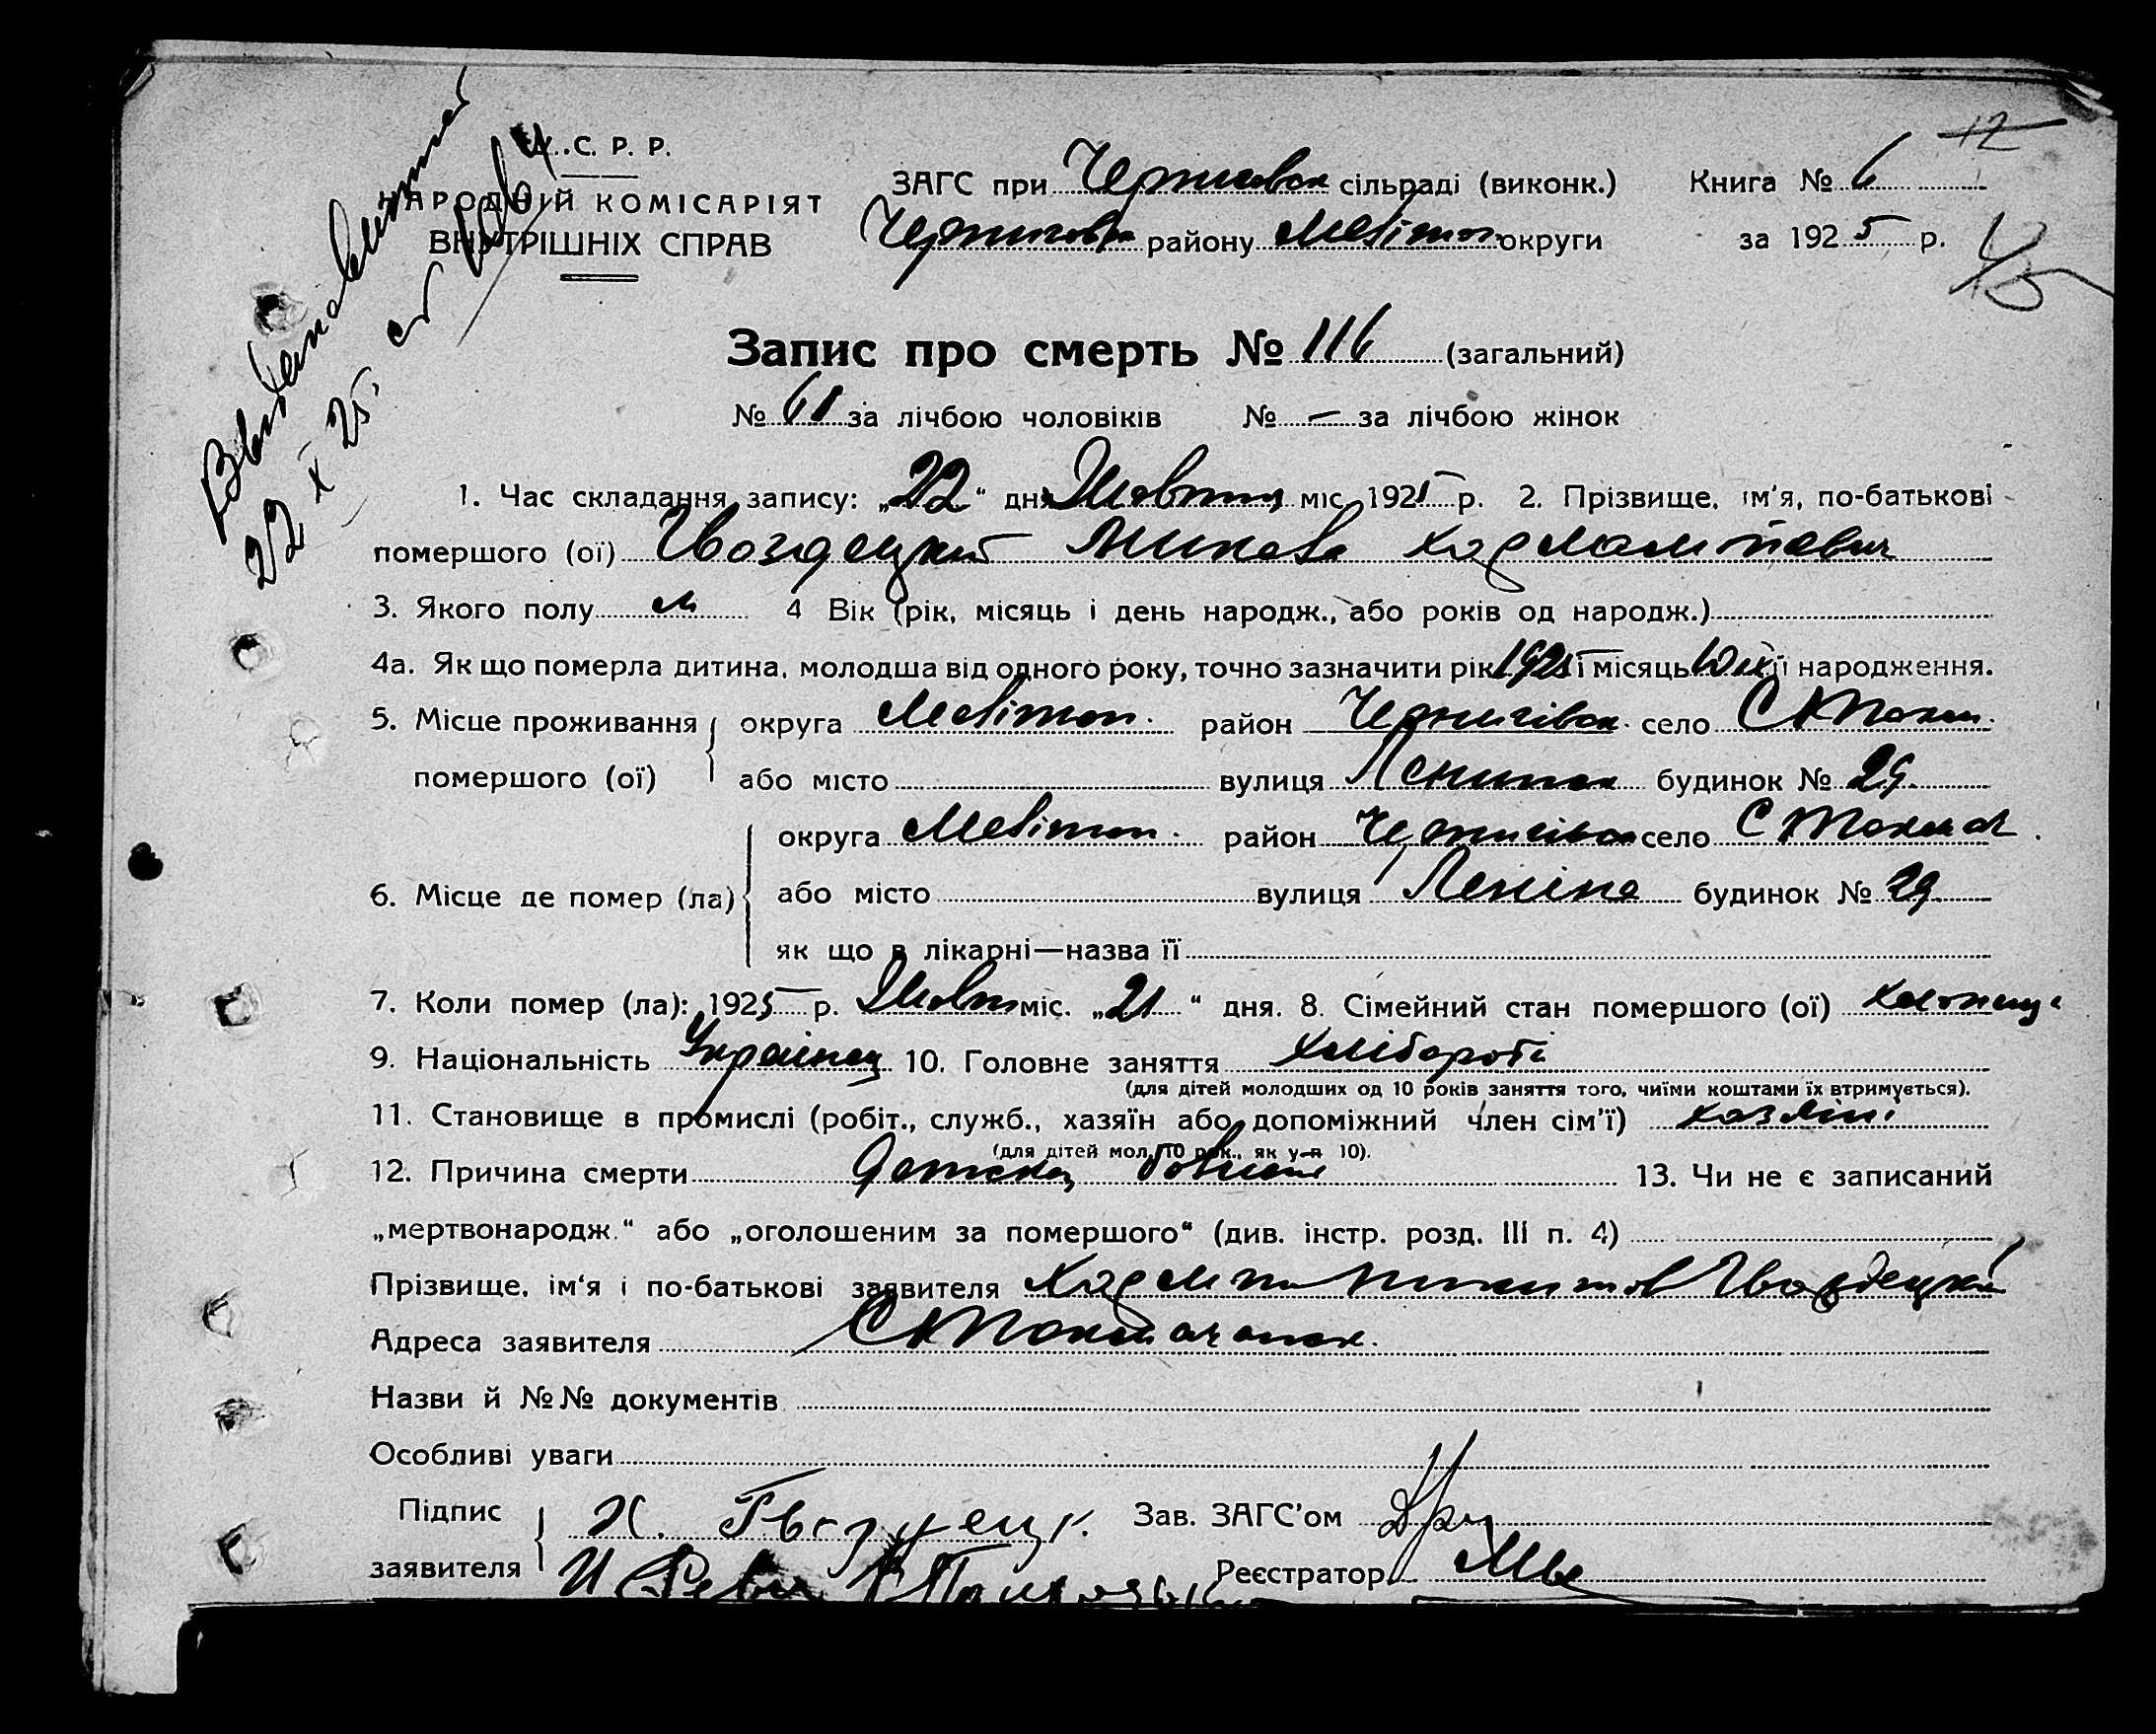 12
С. Р. Р.
НАРОДНІЙ КОМІСАРІЯТ
ВНУТРІШНІХ СПРАВ
ЗАГС при Чернигов сільраді (виконк.) Книга № 6
Чернигов району Мелітоп округи за 1925 р.
45
22 X 25.
Запис про смерть № 116 (загальний)
№ 61 за лічбою чоловіків № — за лічбою жінок
1. Час складання запису: „22“ дня Жовтня міс. 1925 р. 2. Прізвище, ім'я, по-батькові
помершого (ої) Гвоздецкий Микола Харлампієвич
3. Якого полу м 4 Вік (рік, місяць і день народж., або років од народж.)
4а. Як що померла дитина, молодша від одного року, точно зазначити рік 1925 і місяць її народження.
5. Місце проживання округа Мелітоп. район Чернигівск. село С К Токм.
помершого (ої) або місто вулиця Ленина будинок № 29.
округа Мелітоп. район Чернигівск село С К Токмак.
6. Місце де помер (ла) або місто вулиця Леніна будинок № 29.
як що в лікарні—назва її
7. Коли помер (ла): 1925 р. Жовтн міс. „21“ дня. 8. Сімейний стан помершого (ої)
9. Національність Українец 10. Головне заняття Хлібороб
(для дітей молодших од 10 років заняття того, чиїми коштами їх втримується).
11. Становище в промислі (робіт., служб., хазяїн або допоміжний член сім'ї) хазяїн
(для дітей мол. 10 рок., як у п 10).
12. Причина смерти 13. Чи не є записаний
„мертвонародж.“ або „оголошеним за помершого“ (див. інстр. розд. III п. 4)
Прізвище, ім'я і по-батькові заявителя Гвоздецкий
Адреса заявителя
Назви й №№ документів
Особливі уваги
Підпис Х. Гвоздецк. Зав. ЗАГС'ом
заявителя Реєстратор